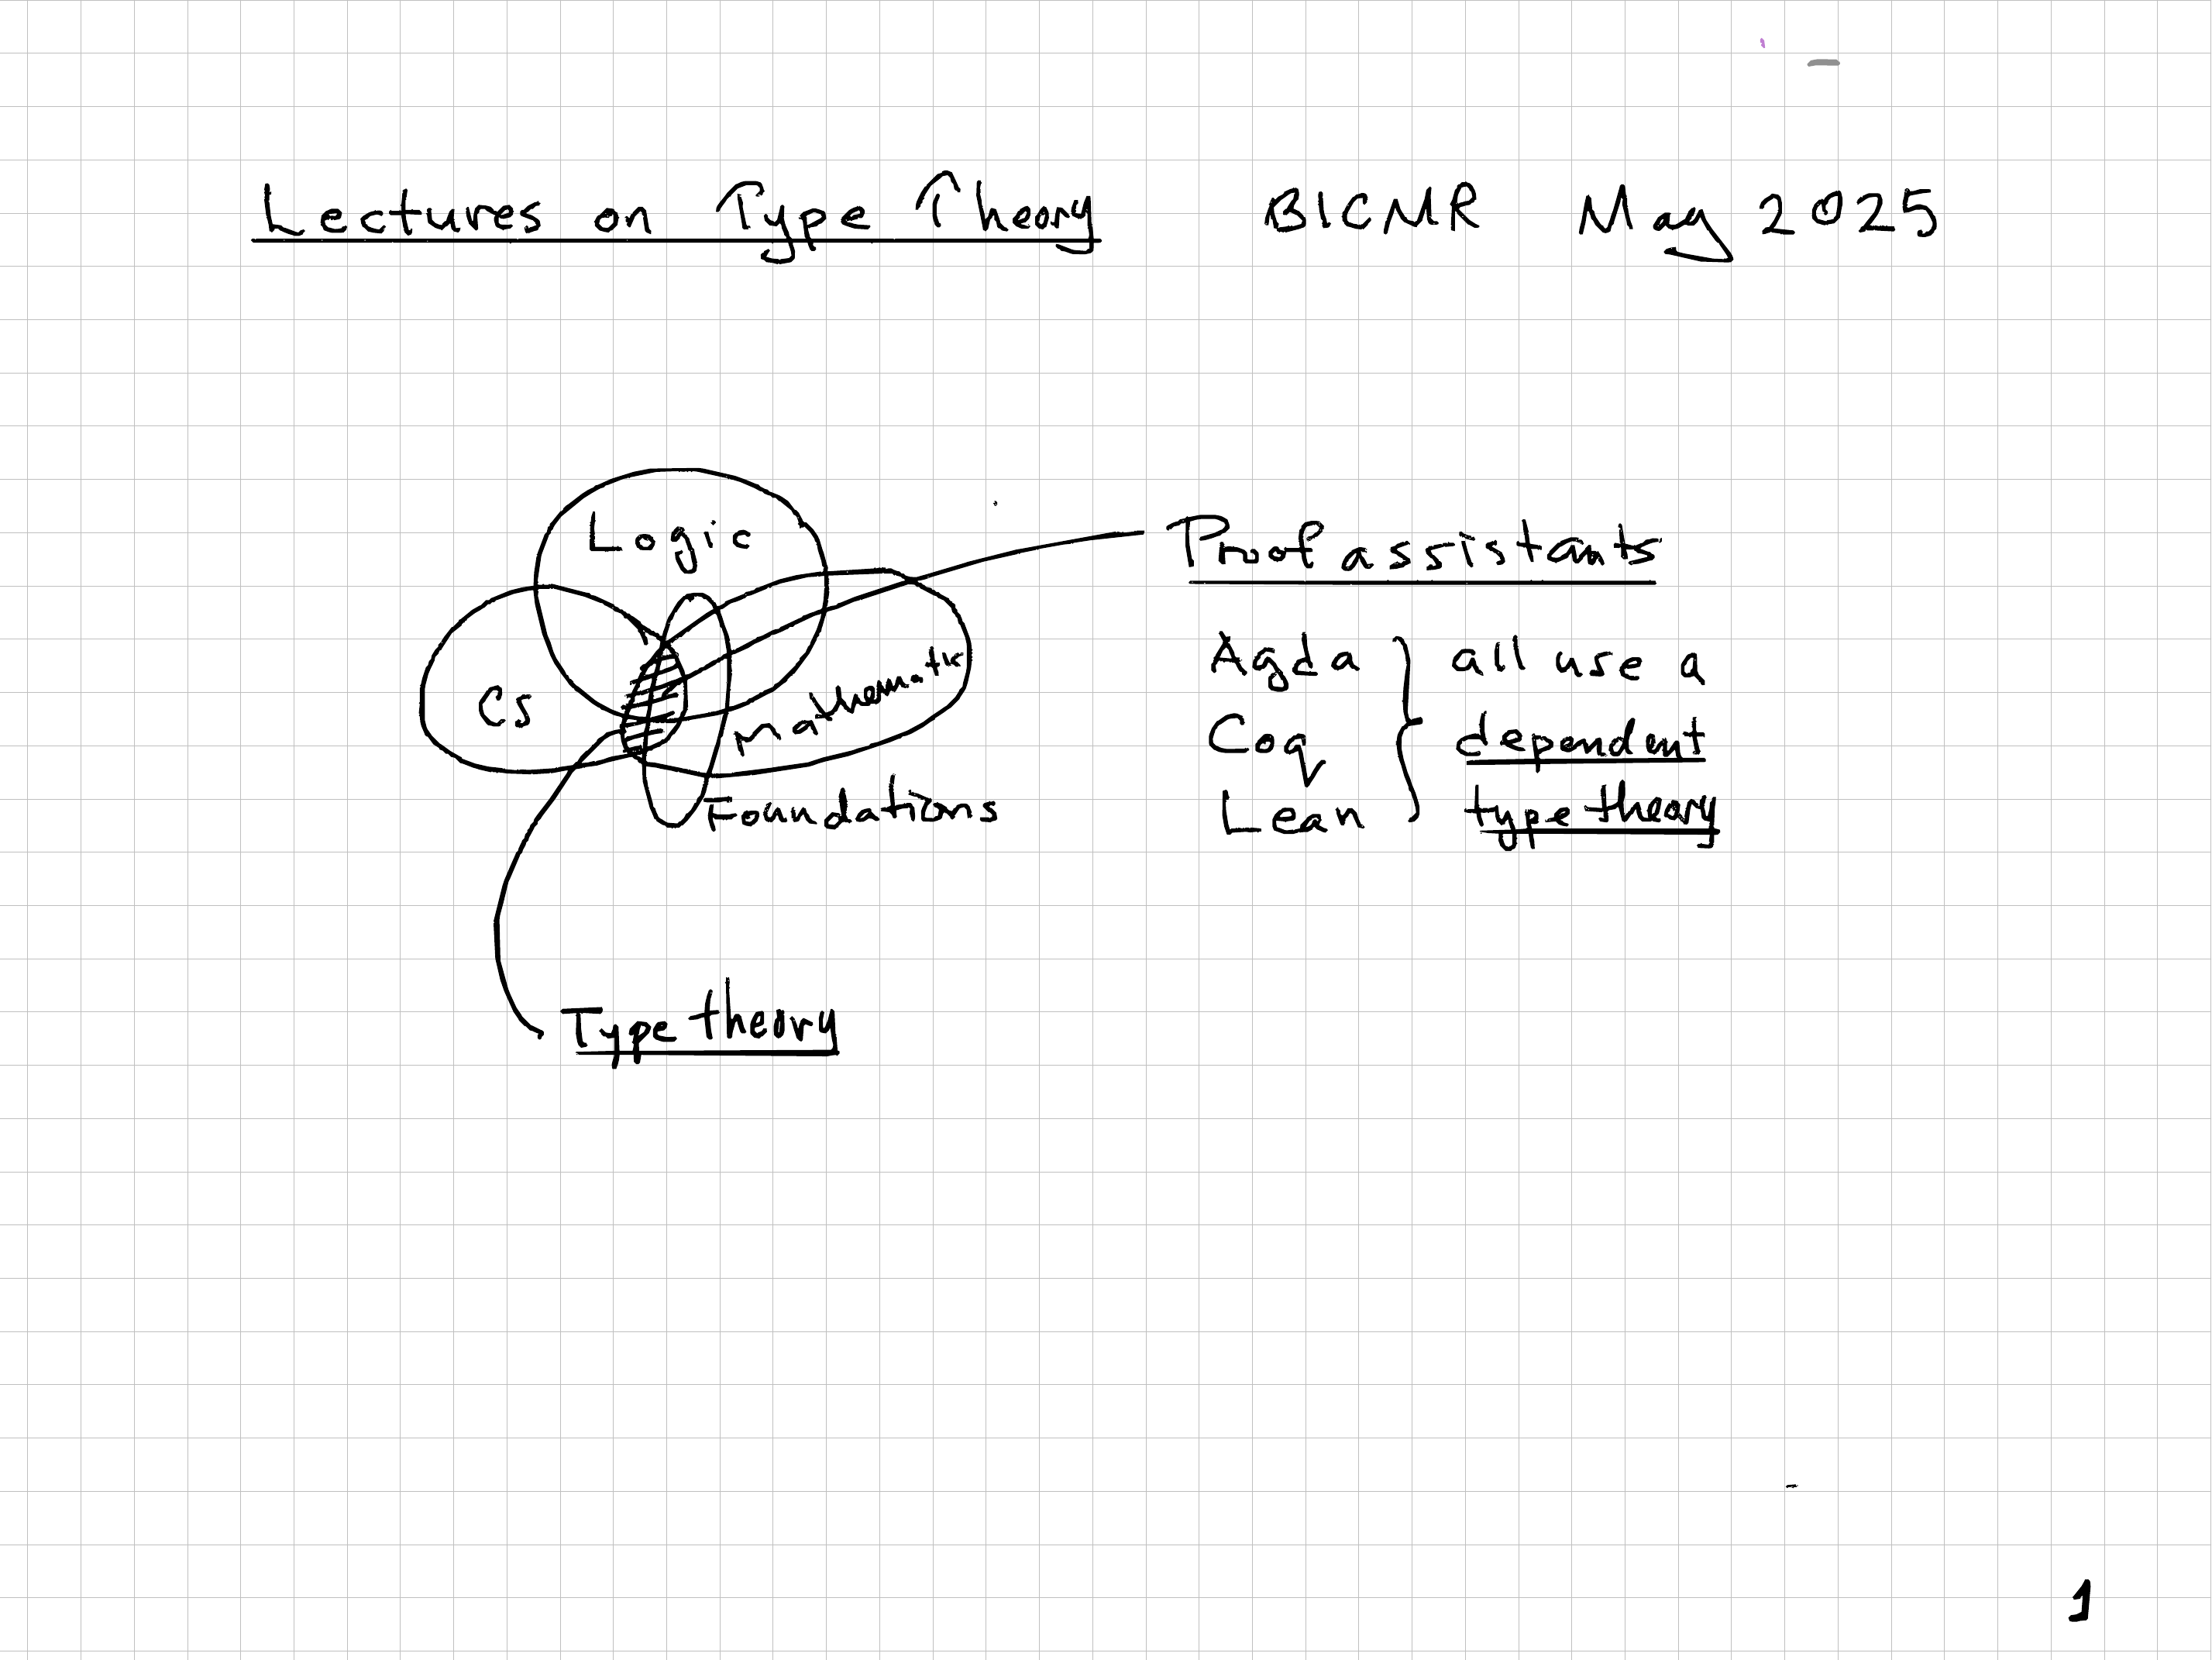 Lectures on Type Theory BICMR May 2025
Logic
CS
Mathematic
Foundations
Type theory
Proof assistants
Agda
Coq
Lean
all use a
dependent
type theory
1